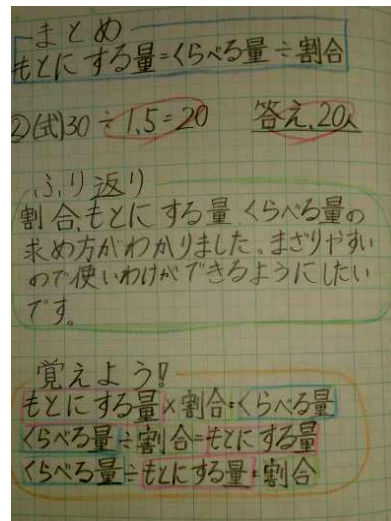 まとめ
もとにする量=くらべる量÷割合
②(式)30÷1.5=20 答え、20人
ふり返り
割合、もとにする量くらべる量の
求め方がわかりました。まざりやすい
ので使いわけができるようにしたい
です。
覚えよう!
もとにする量×割合=くらべる量
くらべる量÷割合=もとにする量
くらべる量÷もとにする量=割合